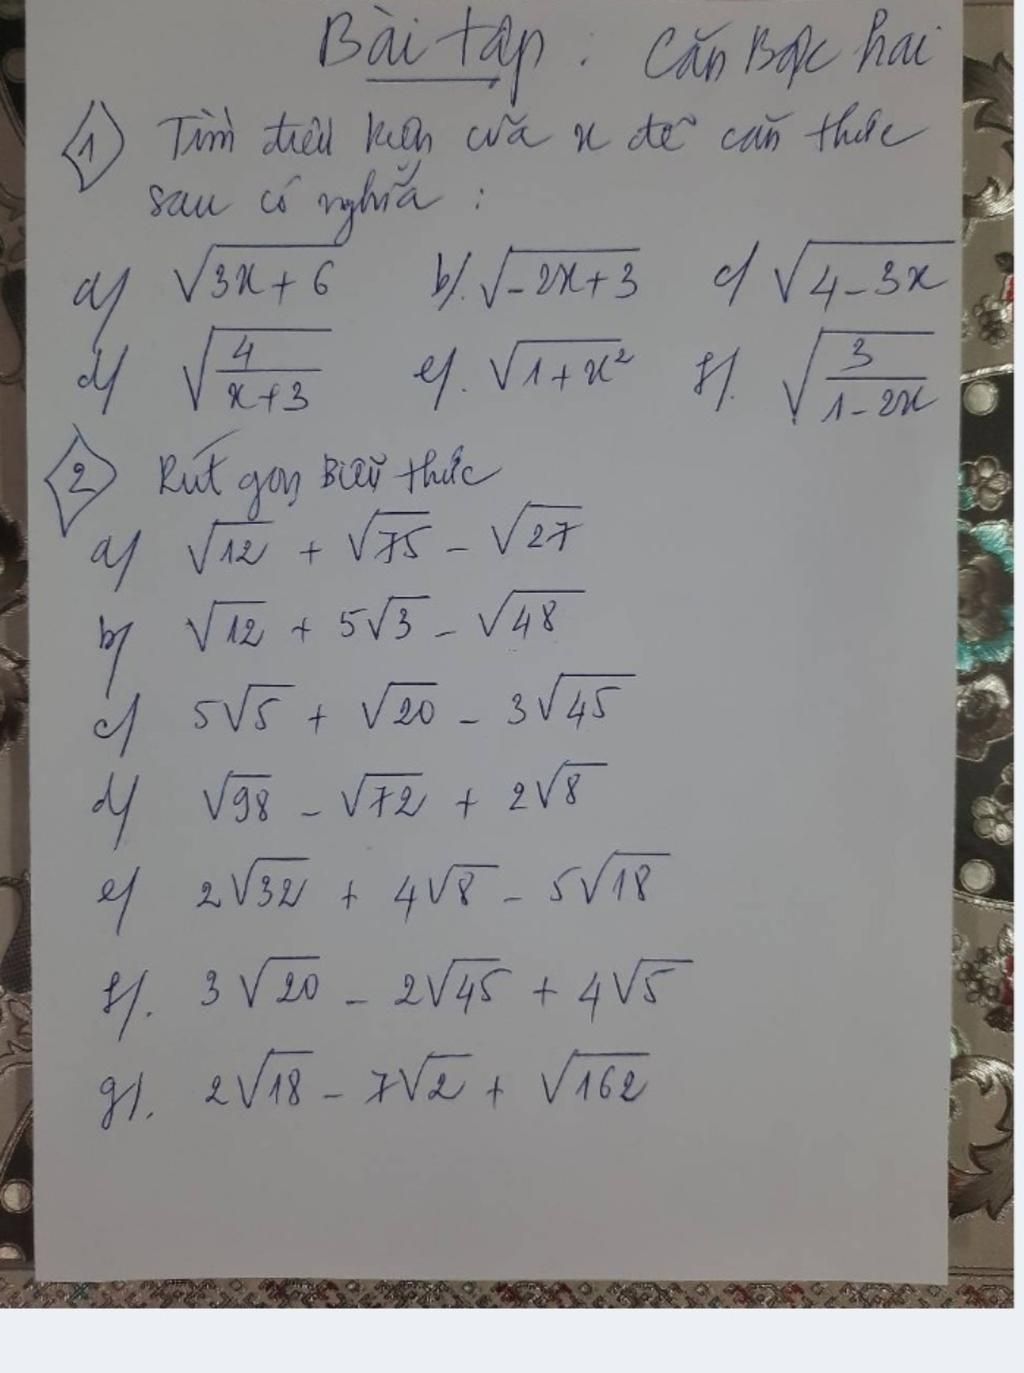 Bài tập : Căn Bậc hai
1 Tìm điều kiện của x để căn thức
sau có nghĩa :
a) √(3x + 6) b). √(-2x+3) c) √(4-3x)
d) √(4/(x+3)) e). √(1+x²) f). √(3/(1-2x))
2 Rút gọn Biểu thức
a) √12 + √75 - √27
b) √12 + 5√3 - √48
c) 5√5 + √20 - 3√45
d) √98 - √72 + 2√8
e) 2√32 + 4√8 - 5√18
f). 3√20 - 2√45 + 4√5
g). 2√18 - 7√2 + √162